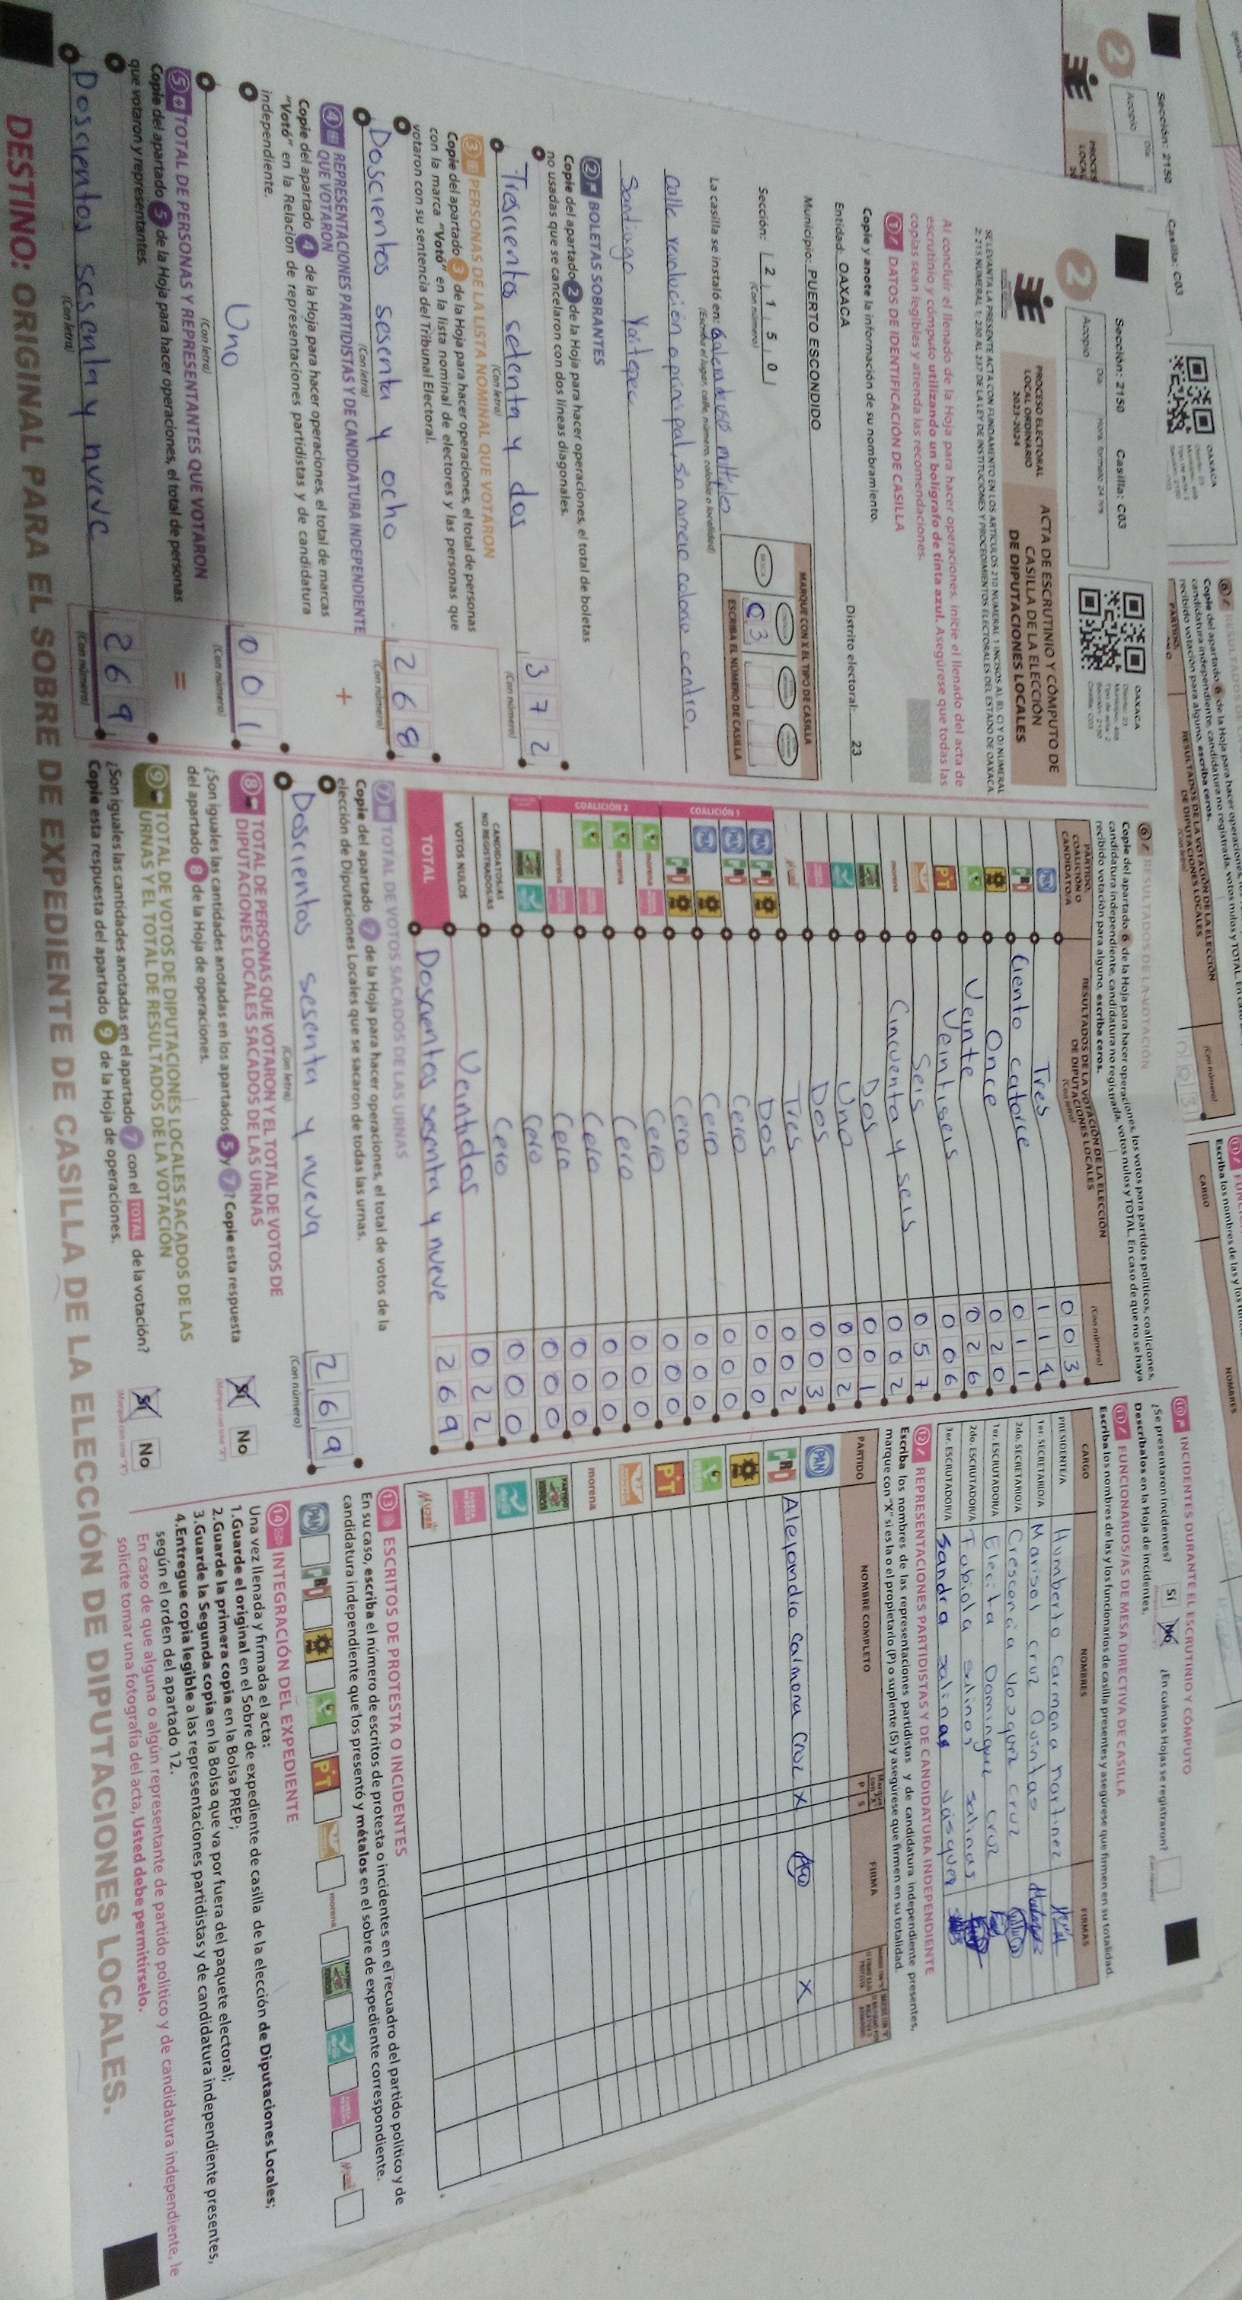 Sección: 2150 Casilla: C03
OAXACA
Acopio
PROCESO ELECTORAL
LOCAL ORDINARIO
2023-2024
ACTA DE ESCRUTINIO Y CÓMPUTO DE
CASILLA DE LA ELECCIÓN
DE DIPUTACIONES LOCALES
SE LEVANTA LA PRESENTE ACTA CON FUNDAMENTO EN LOS ARTÍCULOS
Al concluir el llenado de la Hoja para hacer operaciones, inicie el llenado del acta de
escrutinio y cómputo utilizando un bolígrafo de tinta azul. Asegúrese que todas las
copias sean legibles y atienda las recomendaciones.
1 DATOS DE IDENTIFICACIÓN DE CASILLA
Copie y anote la información de su nombramiento.
Entidad: OAXACA Distrito electoral: 23
Municipio: PUERTO ESCONDIDO
Sección: 2 1 5 0
(Con número)
MARQUE CON X EL TIPO DE CASILLA
ESCRIBA EL NÚMERO DE CASILLA
0 3
La casilla se instaló en:
(Escriba el lugar, calle, número, colonia o localidad)
calle revolución principal, sn numero colonia centro,
Santiago Yaitepec
2 BOLETAS SOBRANTES
Copie del apartado 2 de la Hoja para hacer operaciones, el total de boletas
no usadas que se cancelaron con dos líneas diagonales.
Trescientos setenta y dos 3 7 2
(Con letra) (Con número)
3 PERSONAS DE LA LISTA NOMINAL QUE VOTARON
Copie del apartado 3 de la Hoja para hacer operaciones, el total de personas
con la marca "Votó" en la lista nominal de electores y las personas que
votaron con su sentencia del Tribunal Electoral.
Doscientos sesenta y ocho 2 6 8
(Con letra) (Con número)
4 REPRESENTACIONES PARTIDISTAS Y DE CANDIDATURA INDEPENDIENTE
QUE VOTARON
Copie del apartado 4 de la Hoja para hacer operaciones, el total de marcas
"Votó" en la Relación de representaciones partidistas y de candidatura
independiente.
Uno 0 0 1
(Con letra) (Con número)
5 TOTAL DE PERSONAS Y REPRESENTANTES QUE VOTARON
Copie del apartado 5 de la Hoja para hacer operaciones, el total de personas
que votaron y representantes.
Doscientos sesenta y nueve 2 6 9
(Con letra) (Con número)
6 RESULTADOS DE LA VOTACIÓN
Copie del apartado 6 de la Hoja para hacer operaciones, los votos para partidos políticos, coaliciones,
candidatura independiente, candidatura no registrada, votos nulos y TOTAL. En caso de que no se haya
recibido votación para alguno, escriba ceros.
PARTIDO, COALICIÓN O CANDIDATO/A
RESULTADOS DE LA VOTACIÓN DE LA ELECCIÓN
DE DIPUTACIONES LOCALES
(Con letra) (Con número)
PAN Tres 0 0 3
PRI Ciento catorce 1 1 4
Once 0 1 1
Veinte 0 2 0
PT Veintiseis 0 2 6
Seis 0 0 6
morena Cincuenta y seis 0 5 7
Dos 0 0 2
Uno 0 0 1
Dos 0 0 2
Tres 0 0 3
COALICIÓN 1
Dos 0 0 2
Cero 0 0 0
Cero 0 0 0
Cero 0 0 0
COALICIÓN 2
Cero 0 0 0
Cero 0 0 0
Cero 0 0 0
Cero 0 0 0
Cero 0 0 0
CANDIDATOS/AS
NO REGISTRADOS/AS Cero 0 0 0
VOTOS NULOS Veintidos 0 2 2
TOTAL Doscientos sesenta y nueve 2 6 9
7 TOTAL DE VOTOS SACADOS DE LAS URNAS
Copie del apartado 7 de la Hoja para hacer operaciones, el total de votos de la
elección de Diputaciones Locales que se sacaron de todas las urnas.
Doscientos sesenta y nueva 2 6 9
(Con letra) (Con número)
8 TOTAL DE PERSONAS QUE VOTARON Y EL TOTAL DE VOTOS DE
DIPUTACIONES LOCALES SACADOS DE LAS URNAS
¿Son iguales las cantidades anotadas en los apartados 5 y 7? Copie esta respuesta
del apartado 8 de la Hoja de operaciones. Sí No
9 TOTAL DE VOTOS DE DIPUTACIONES LOCALES SACADOS DE LAS
URNAS Y EL TOTAL DE RESULTADOS DE LA VOTACIÓN
¿Son iguales las cantidades anotadas en el apartado 7 con el TOTAL de la votación?
Copie esta respuesta del apartado 9 de la Hoja de operaciones. Sí No
10 INCIDENTES DURANTE EL ESCRUTINIO Y CÓMPUTO
¿Se presentaron incidentes? Sí No ¿En cuántas Hojas se registraron?
Descríbalos en la Hoja de incidentes.
11 FUNCIONARIOS/AS DE MESA DIRECTIVA DE CASILLA
Escriba los nombres de las y los funcionarios de casilla presentes y asegúrese que firmen en su totalidad.
CARGO NOMBRES FIRMAS
PRESIDENTE/A Humberto Carmona Martinez
1er. SECRETARIO/A Marisol cruz Quintas
2do. SECRETARIO/A Crescencia Vasquez cruz
1er. ESCRUTADOR/A Elecita Dominguez cruz
2do. ESCRUTADOR/A Fabiola salinas salinas
3er. ESCRUTADOR/A Sandra salinas Vásquez
12 REPRESENTACIONES PARTIDISTAS Y DE CANDIDATURA INDEPENDIENTE
Escriba los nombres de las representaciones partidistas y de candidatura independiente presentes,
marque con "X" si es la o el propietario (P) o suplente (S) y asegúrese que firmen en su totalidad.
PARTIDO NOMBRE COMPLETO P S FIRMA
PAN
PRI Alejandro Carmona Cruz X X
PT
morena
MUJER
13 ESCRITOS DE PROTESTA O INCIDENTES
En su caso, escriba el número de escritos de protesta o incidentes en el recuadro del partido político y de
candidatura independiente que los presentó y métalos en el sobre de expediente correspondiente.
PAN PRI PT morena
14 INTEGRACIÓN DEL EXPEDIENTE
Una vez llenada y firmada el acta:
1.Guarde el original en el Sobre de expediente de casilla de la elección de Diputaciones Locales;
2.Guarde la primera copia en la Bolsa PREP;
3.Guarde la Segunda copia en la Bolsa que va por fuera del paquete electoral;
4.Entregue copia legible a las representaciones partidistas y de candidatura independiente presentes,
según el orden del apartado 12.
En caso de que alguna o algún representante de partido político y de candidatura independiente, le
solicite tomar una fotografía del acta, Usted debe permitírselo.
DESTINO: ORIGINAL PARA EL SOBRE DE EXPEDIENTE DE CASILLA DE LA ELECCIÓN DE DIPUTACIONES LOCALES.